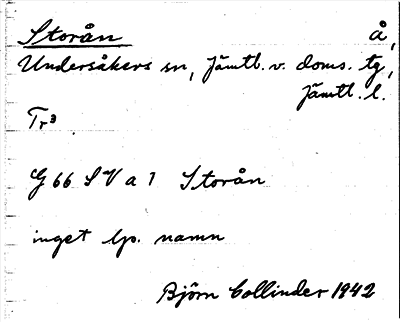 Storån å,
Undersåkers sn, Jämtl. v. doms. tg,
Jämtl. l.
Tr³
G 66 SV a 1 Storån
inget lp. namn
Björn Collinder 1942